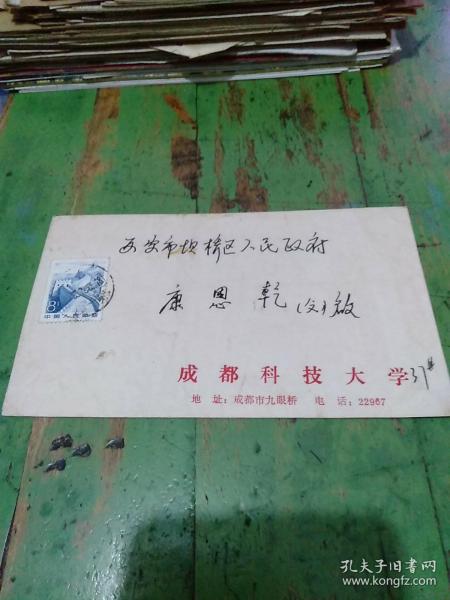 西安市坝桥区人民政府
康恩乾(父)啟
成都科技大学37#
地址:成都市九眼桥 电话:22967
8
中国人民邮政
孔夫子旧书网
www.kongfz.com